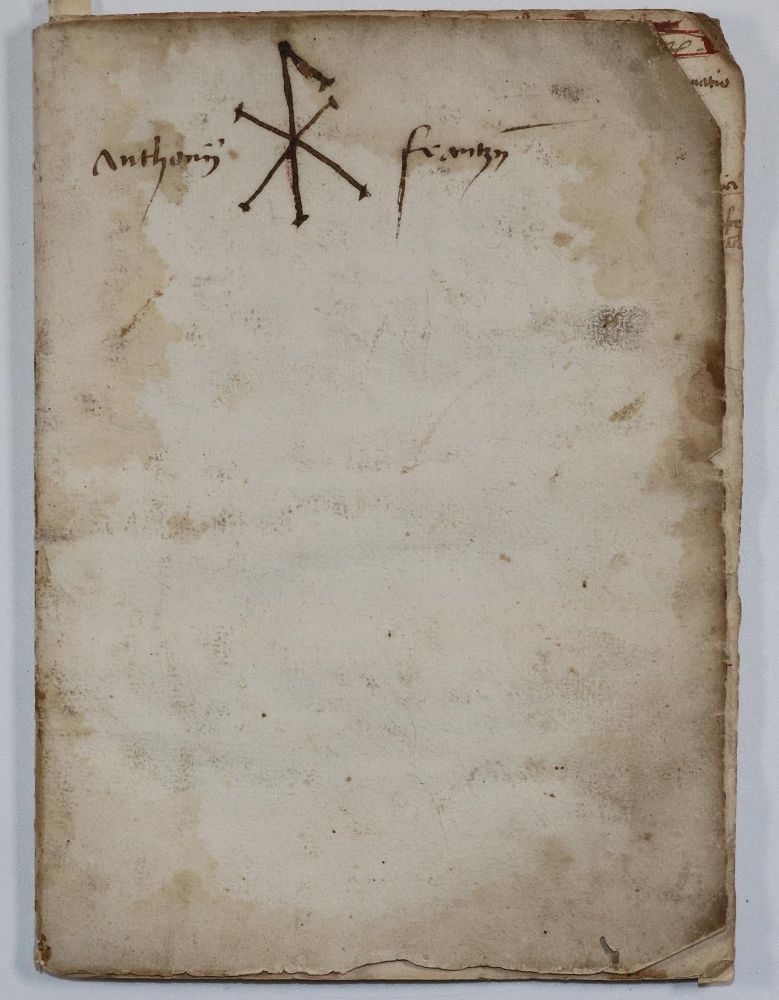 Anthonij frantzn